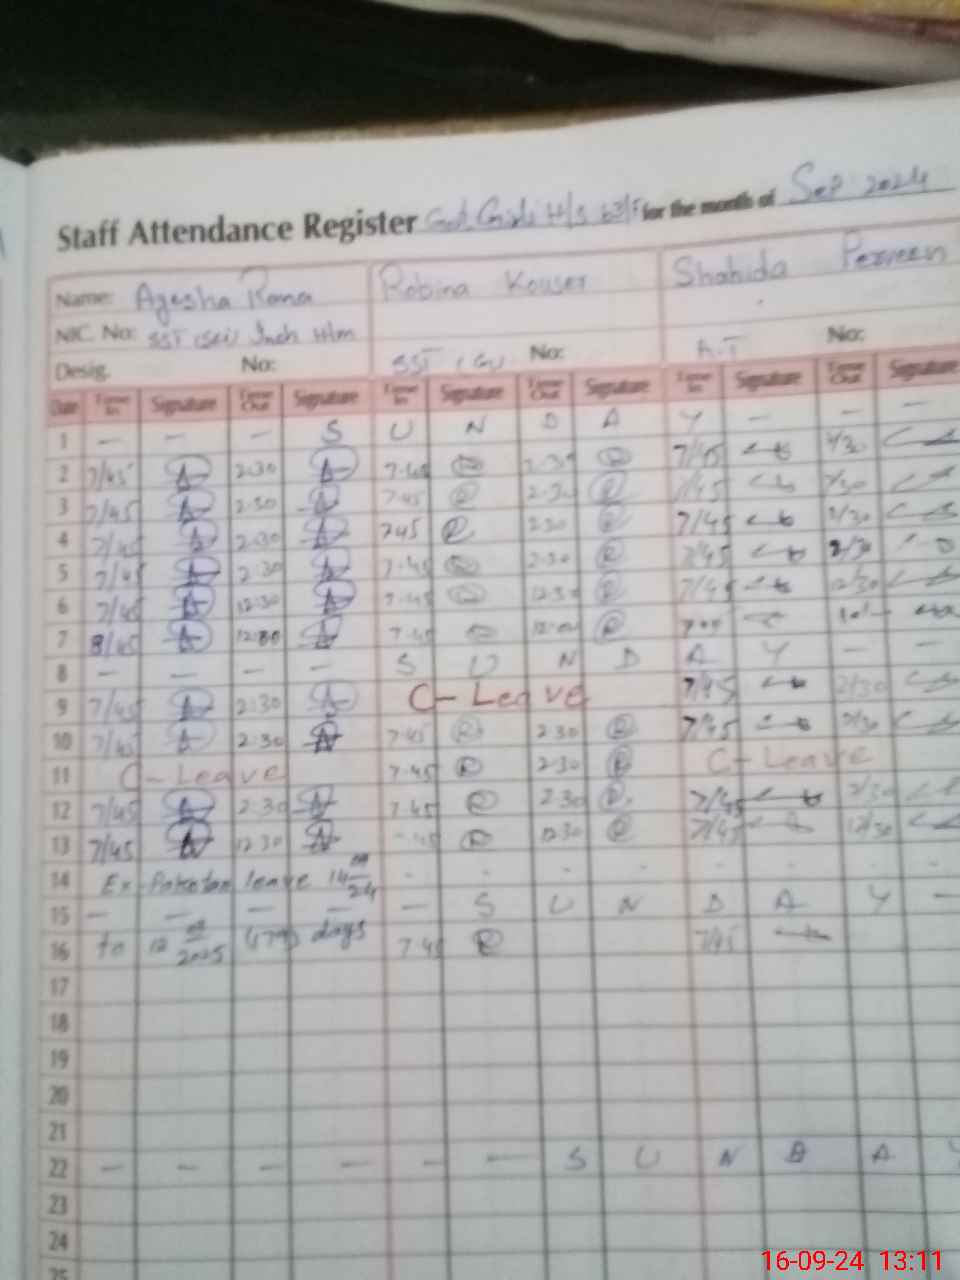 Staff Attendance Register Govt. Girls H/S for the month of Sep 2024
Name: Ayesha Rana Robina Kouser Shahida Perveen
NIC. No: SST (Sci) Inch Hm No:
Desig. No: SST (G) No: A.T
Date Time In Signature Time Out Signature Time In Signature Time Out Signature Time In Signature Time Out Signature
1 — — — S U N D A Y — — —
2 7/45 2:30 7.45 2.30 7/45 2/30
3 7/45 2:30 7.45 2.30 7/45 2/30
4 7/45 2:30 7.45 2.30 7/45 2/30
5 7/45 2:30 7.45 2.30 7/45 2/30
6 7/45 12:30 7.45 12.30 7/45 12/30
7 8/45 12:00 7.45
8 — — — — S U N D A Y — —
9 7/45 2:30 C-Leave 7/45 2/30
10 7/45 2:30 7.45 2.30 7/45 2/30
11 C-Leave 7.45 2.30 C-Leave
12 7/45 2:30 7.45 2.30 7/45 2/30
13 7/45 12.30 .45 12.30 7/45 12/30
14 Ex-Pakistan leave 14 24
15 — — — — — S U N D A Y —
16 to 12 2025 days 7.45 7/45
17
18
19
20
21
22 — — — — — — S U N D A Y
23
24
25
16-09-24 13:11